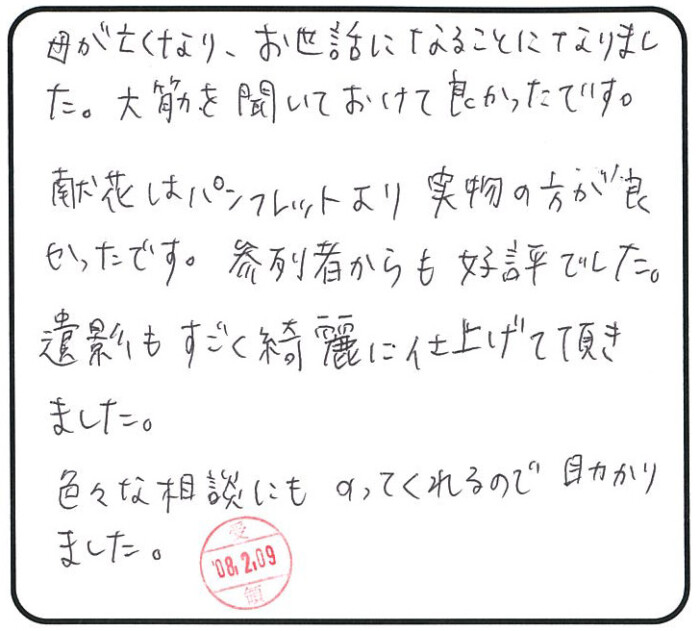 母が亡くなり、お世話になることになりまし
た。大筋を聞いておけて良かったです。
献花はパンフレットより実物の方が良
かったです。参列者からも好評でした。
遺影もすごく綺麗に仕上げて頂き
ました。
色々な相談にものってくれるので助かり
ました。
受
'08.2.09